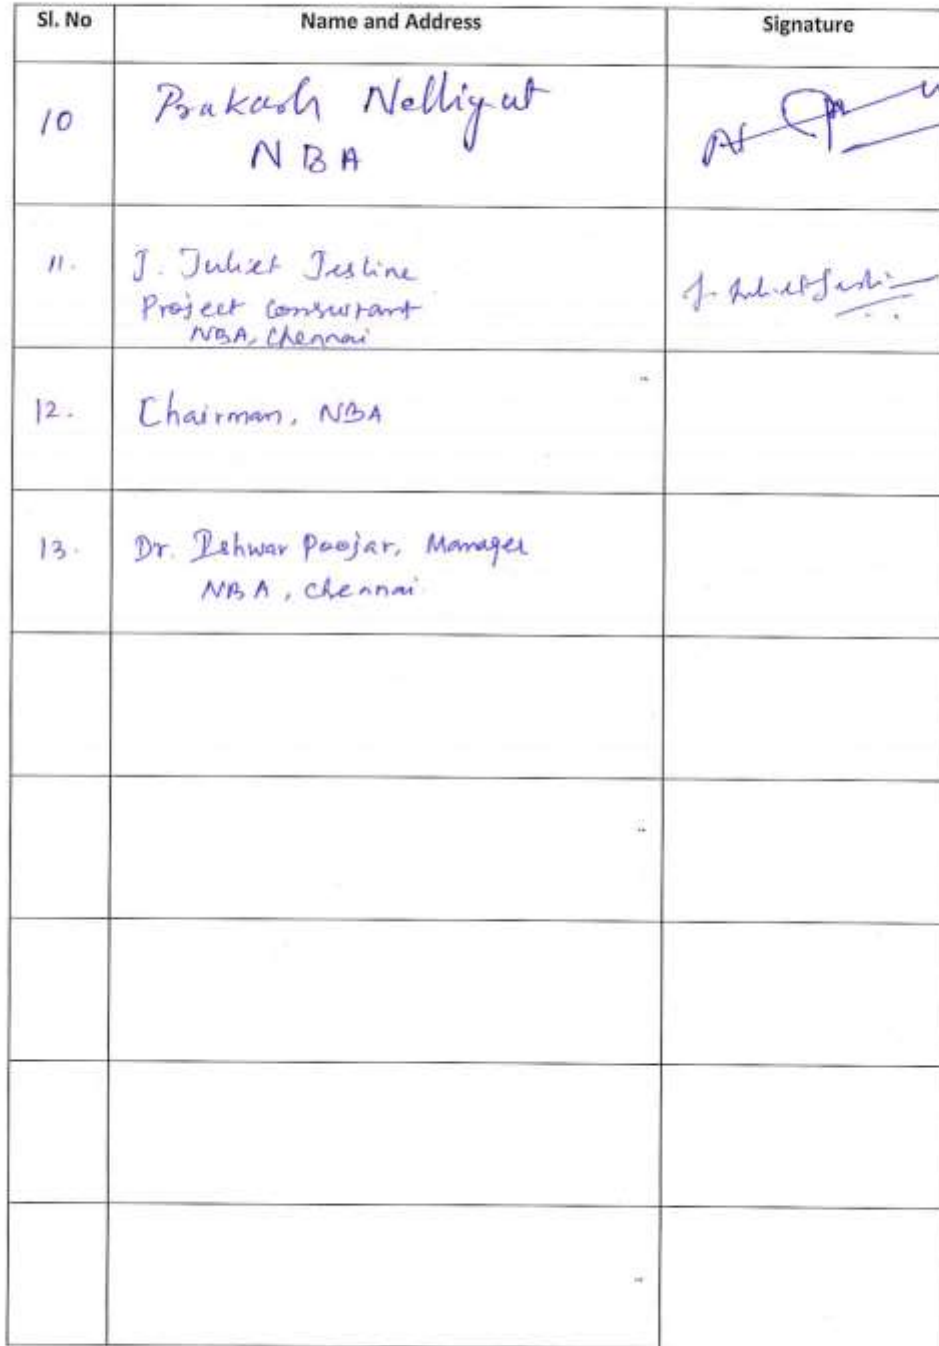 Sl. No Name and Address Signature
10 Prakash Nelliyat
NBA
11. J. Juliet Jesline
Project Consultant
NBA, Chennai
12. Chairman, NBA
13. Dr. Ishwar Poojar, Manager
NBA, Chennai